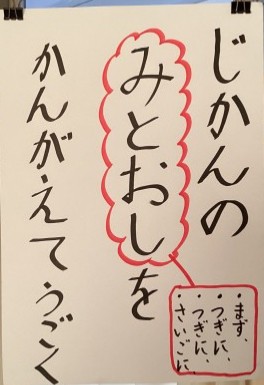 じかんの
みとおしを
かんがえてうごく
・まず、
・つぎに、
・つぎに、
・さいごに、